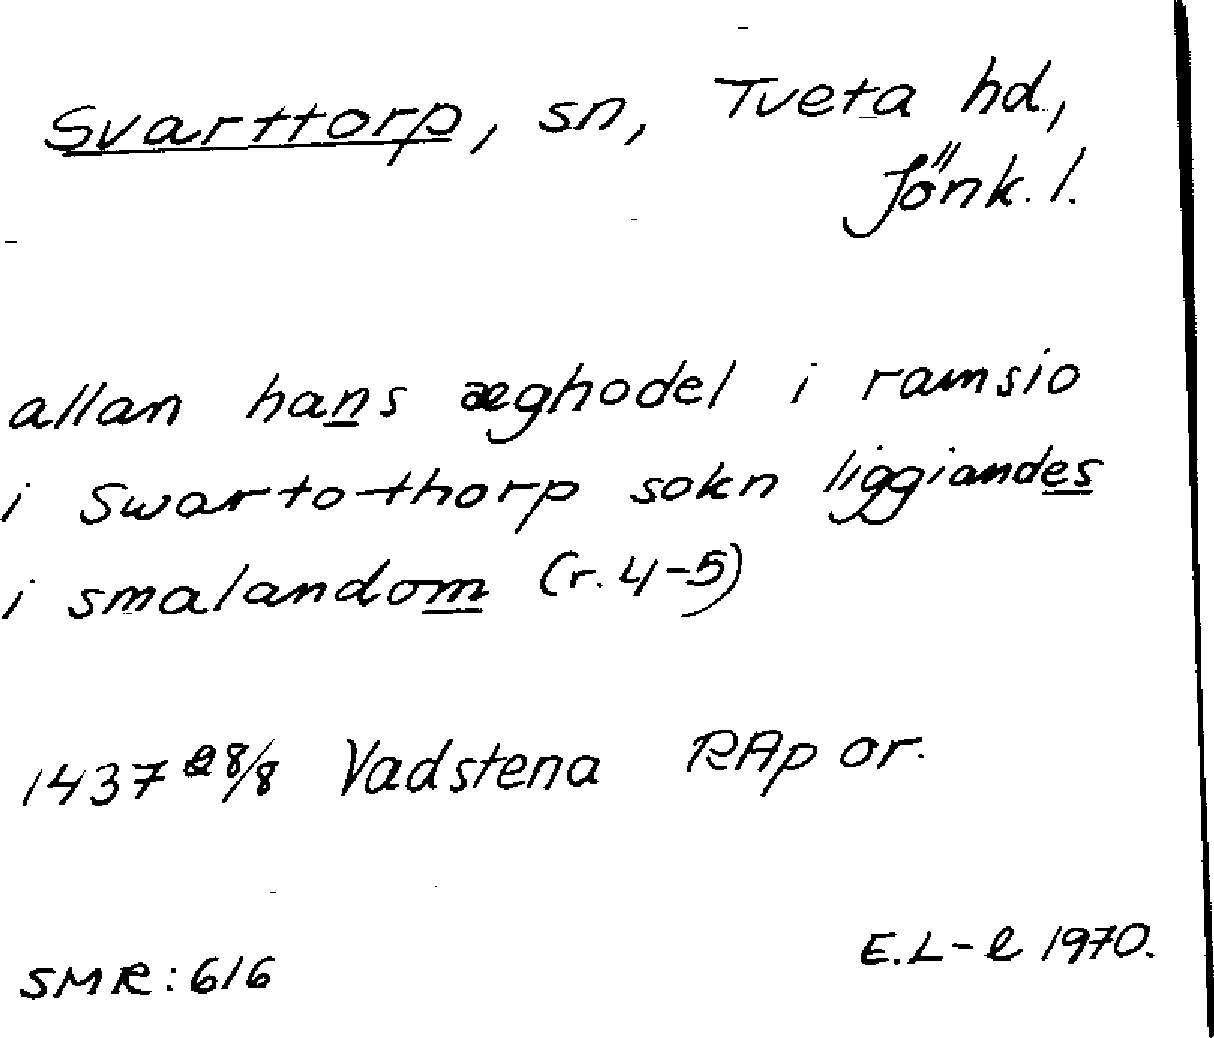 Svarttorp, sn, Tveta hd,
Jönk. l.
allan hans æghodel i ramsio
i Swartothorp sokn liggiandes
i smalandom (r. 4-5)
1437 28/8 Vadstena RAp or.
E.L-l 1970.
SMR: 616